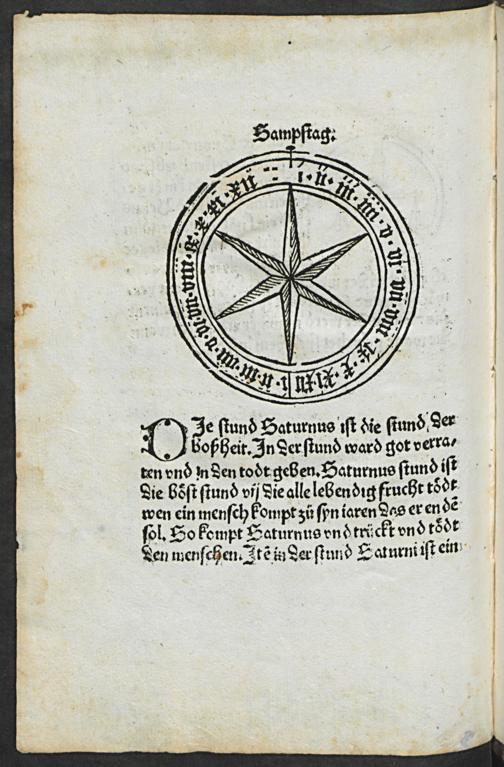 Sampstag:
i · ii · iii · iiii · v · vi · vii · viii · ix · x · xi · xii · i · ii · iii · iiii · v · vi · vii · viii · ix · x · xi · xii
DIe stund Saturnus ist die stund der
boßheit. In der stund ward got verra/
ten vnd in den todt geben. Saturnus stund ist
die böst stund vij die alle lebendig frucht tödt
wen ein mensch kompt zů syn iaren das er en dē
sol. So kompt Saturnus vnd trückt vnd tödt
den menschen. Itē in der stund Saturni ist ein